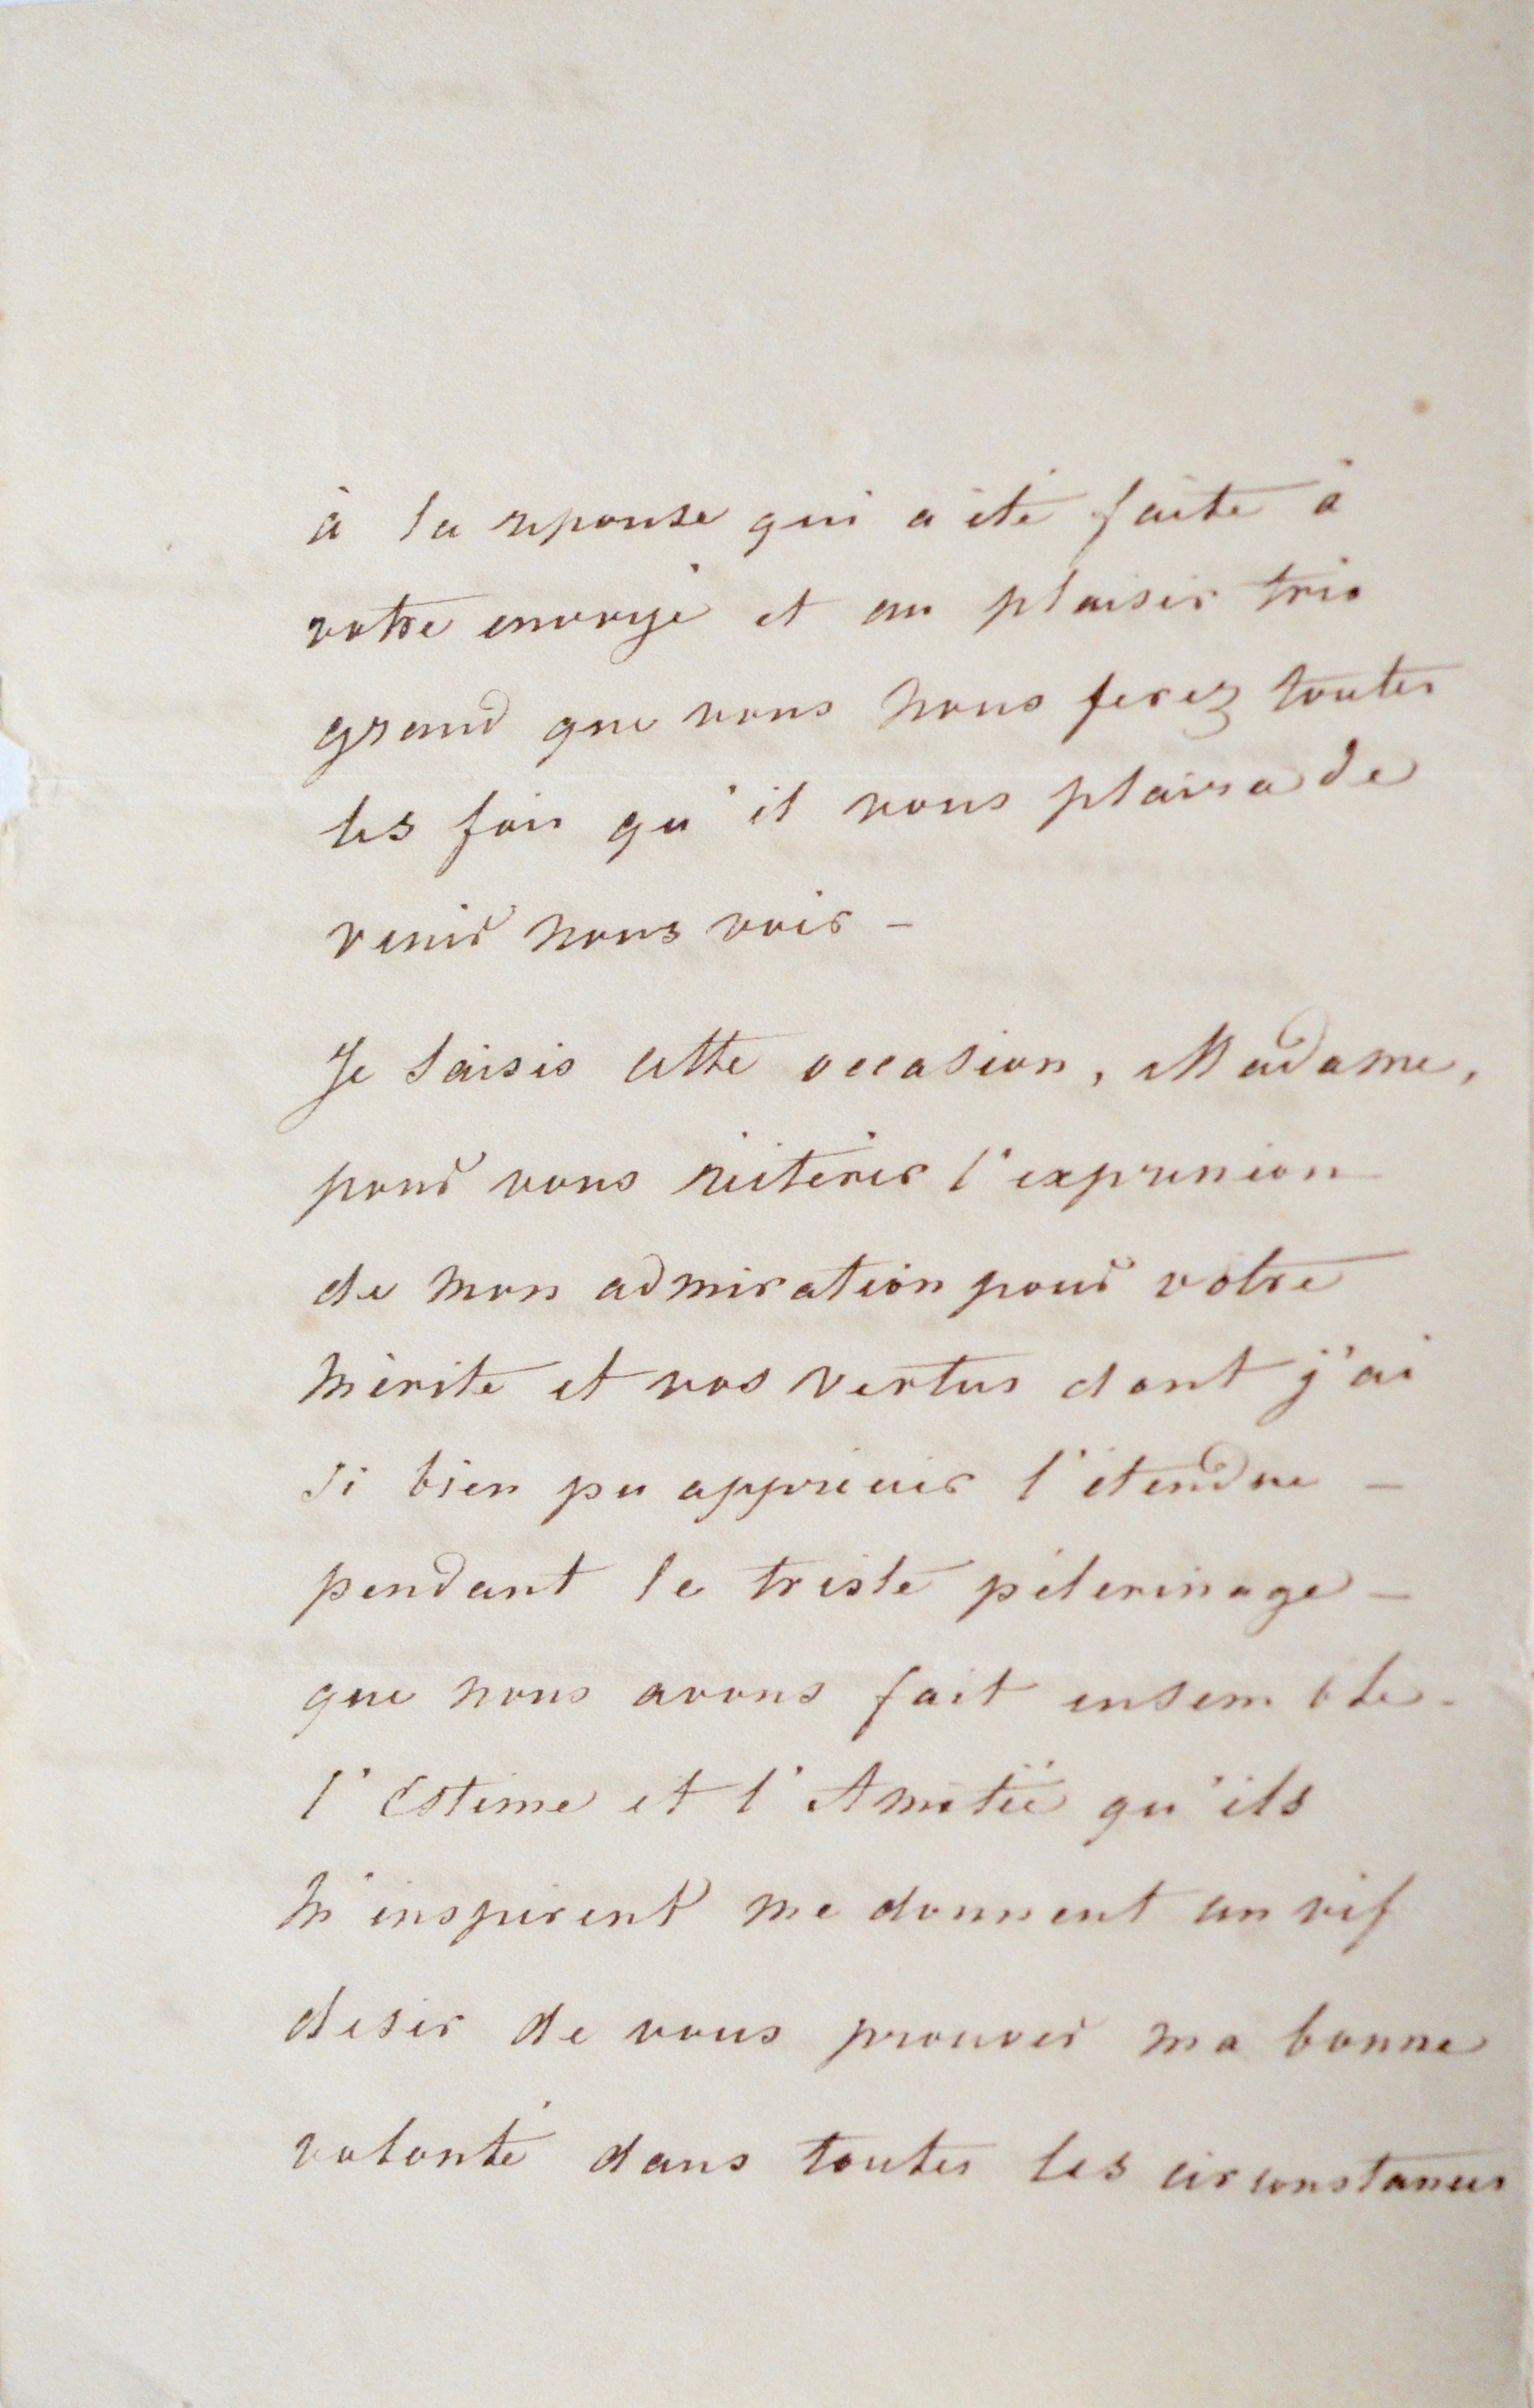 à la reponse qui a été faite à
votre envoyé et au plaisir très
grand que vous nous ferez toutes
les fois qu'il vous plaira de
venir nous voir –
Je saisis cette occasion, Madame,
pour vous réitérer l'expression
de mon admiration pour votre
mérite et vos vertus dont j'ai
si bien pu apprécier l'étendue –
pendant le triste pélerinage –
que nous avons fait ensemble.
l'Estime et l'Amitié qu'ils
m'inspirent me donnent un vif
desir de vous prouver ma bonne
volonté dans toutes les circonstances